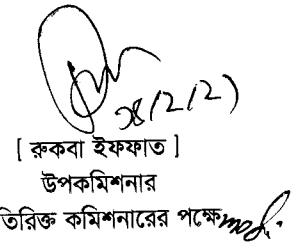 [ রুকবা ইফফাত ]
উপকমিশনার
তিরিক্ত কমিশনারের পক্ষে